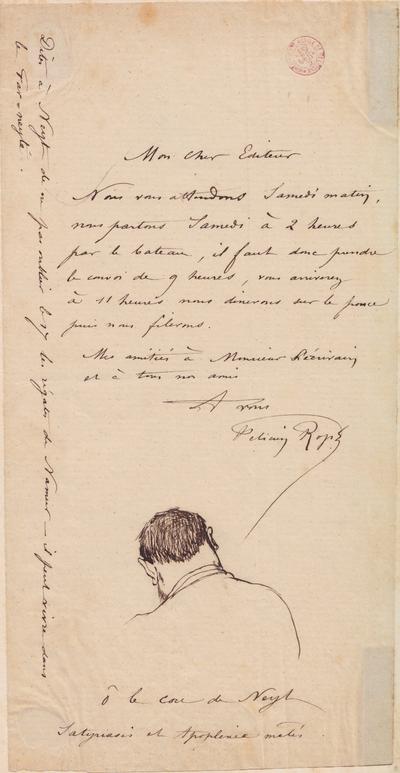 Mon cher Editeur
Nous vous attendons Samedi matin,
nous partons Samedi à 2 heures
par le bateau, il faut donc prendre
le convoi de 9 heures, vous arriverez
à 11 heures nous dinerons sur le pouce
puis nous filerons.
Mes amitiés à Monsieur Lécrivain
et à tous nos amis
A vous
Felicien Rops
ô le cou de Neyt
Satyriasis et Apoplexie mêlés.
Dites à Neyt de ne pas oublier le 17 les régates de Namur – il peut vivre dans
le